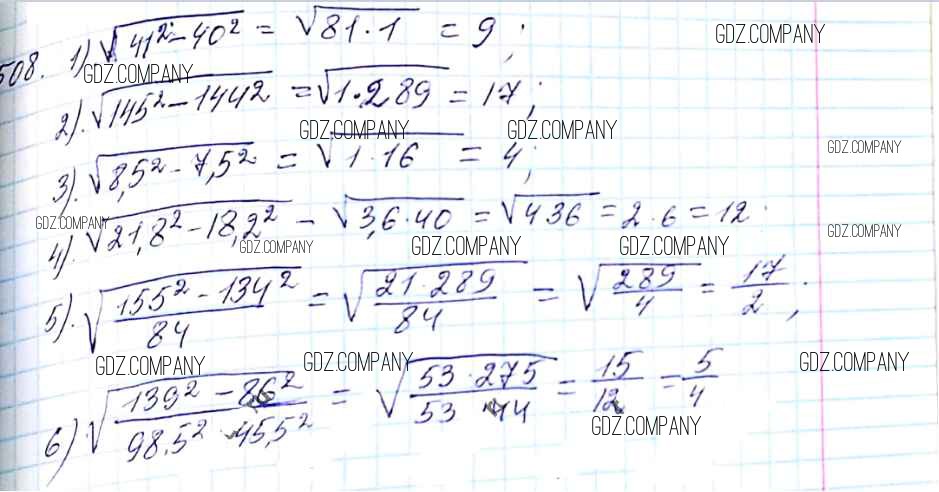 508. 1) √(41² - 40²) = √(81·1) = 9;
GDZ.COMPANY
GDZ.COMPANY
2). √(145² - 144²) = √(1·289) = 17;
GDZ.COMPANY GDZ.COMPANY
3). √(8,5² - 7,5²) = √(1·16) = 4;
GDZ.COMPANY
4). √(21,8² - 18,2²) - √(3,6·40) = √(4 36) = 2·6 = 12.
GDZ.COMPANY GDZ.COMPANY
GDZ.COMPANY GDZ.COMPANY GDZ.COMPANY
5). √((155² - 134²)/84) = √((21·289)/84) = √(289/4) = 17/2;
GDZ.COMPANY GDZ.COMPANY GDZ.COMPANY
6) √((139² - 86²)/(98.5² - 45,5²)) = √((53·275)/(53 144)) = 15/12 = 5/4
GDZ.COMPANY